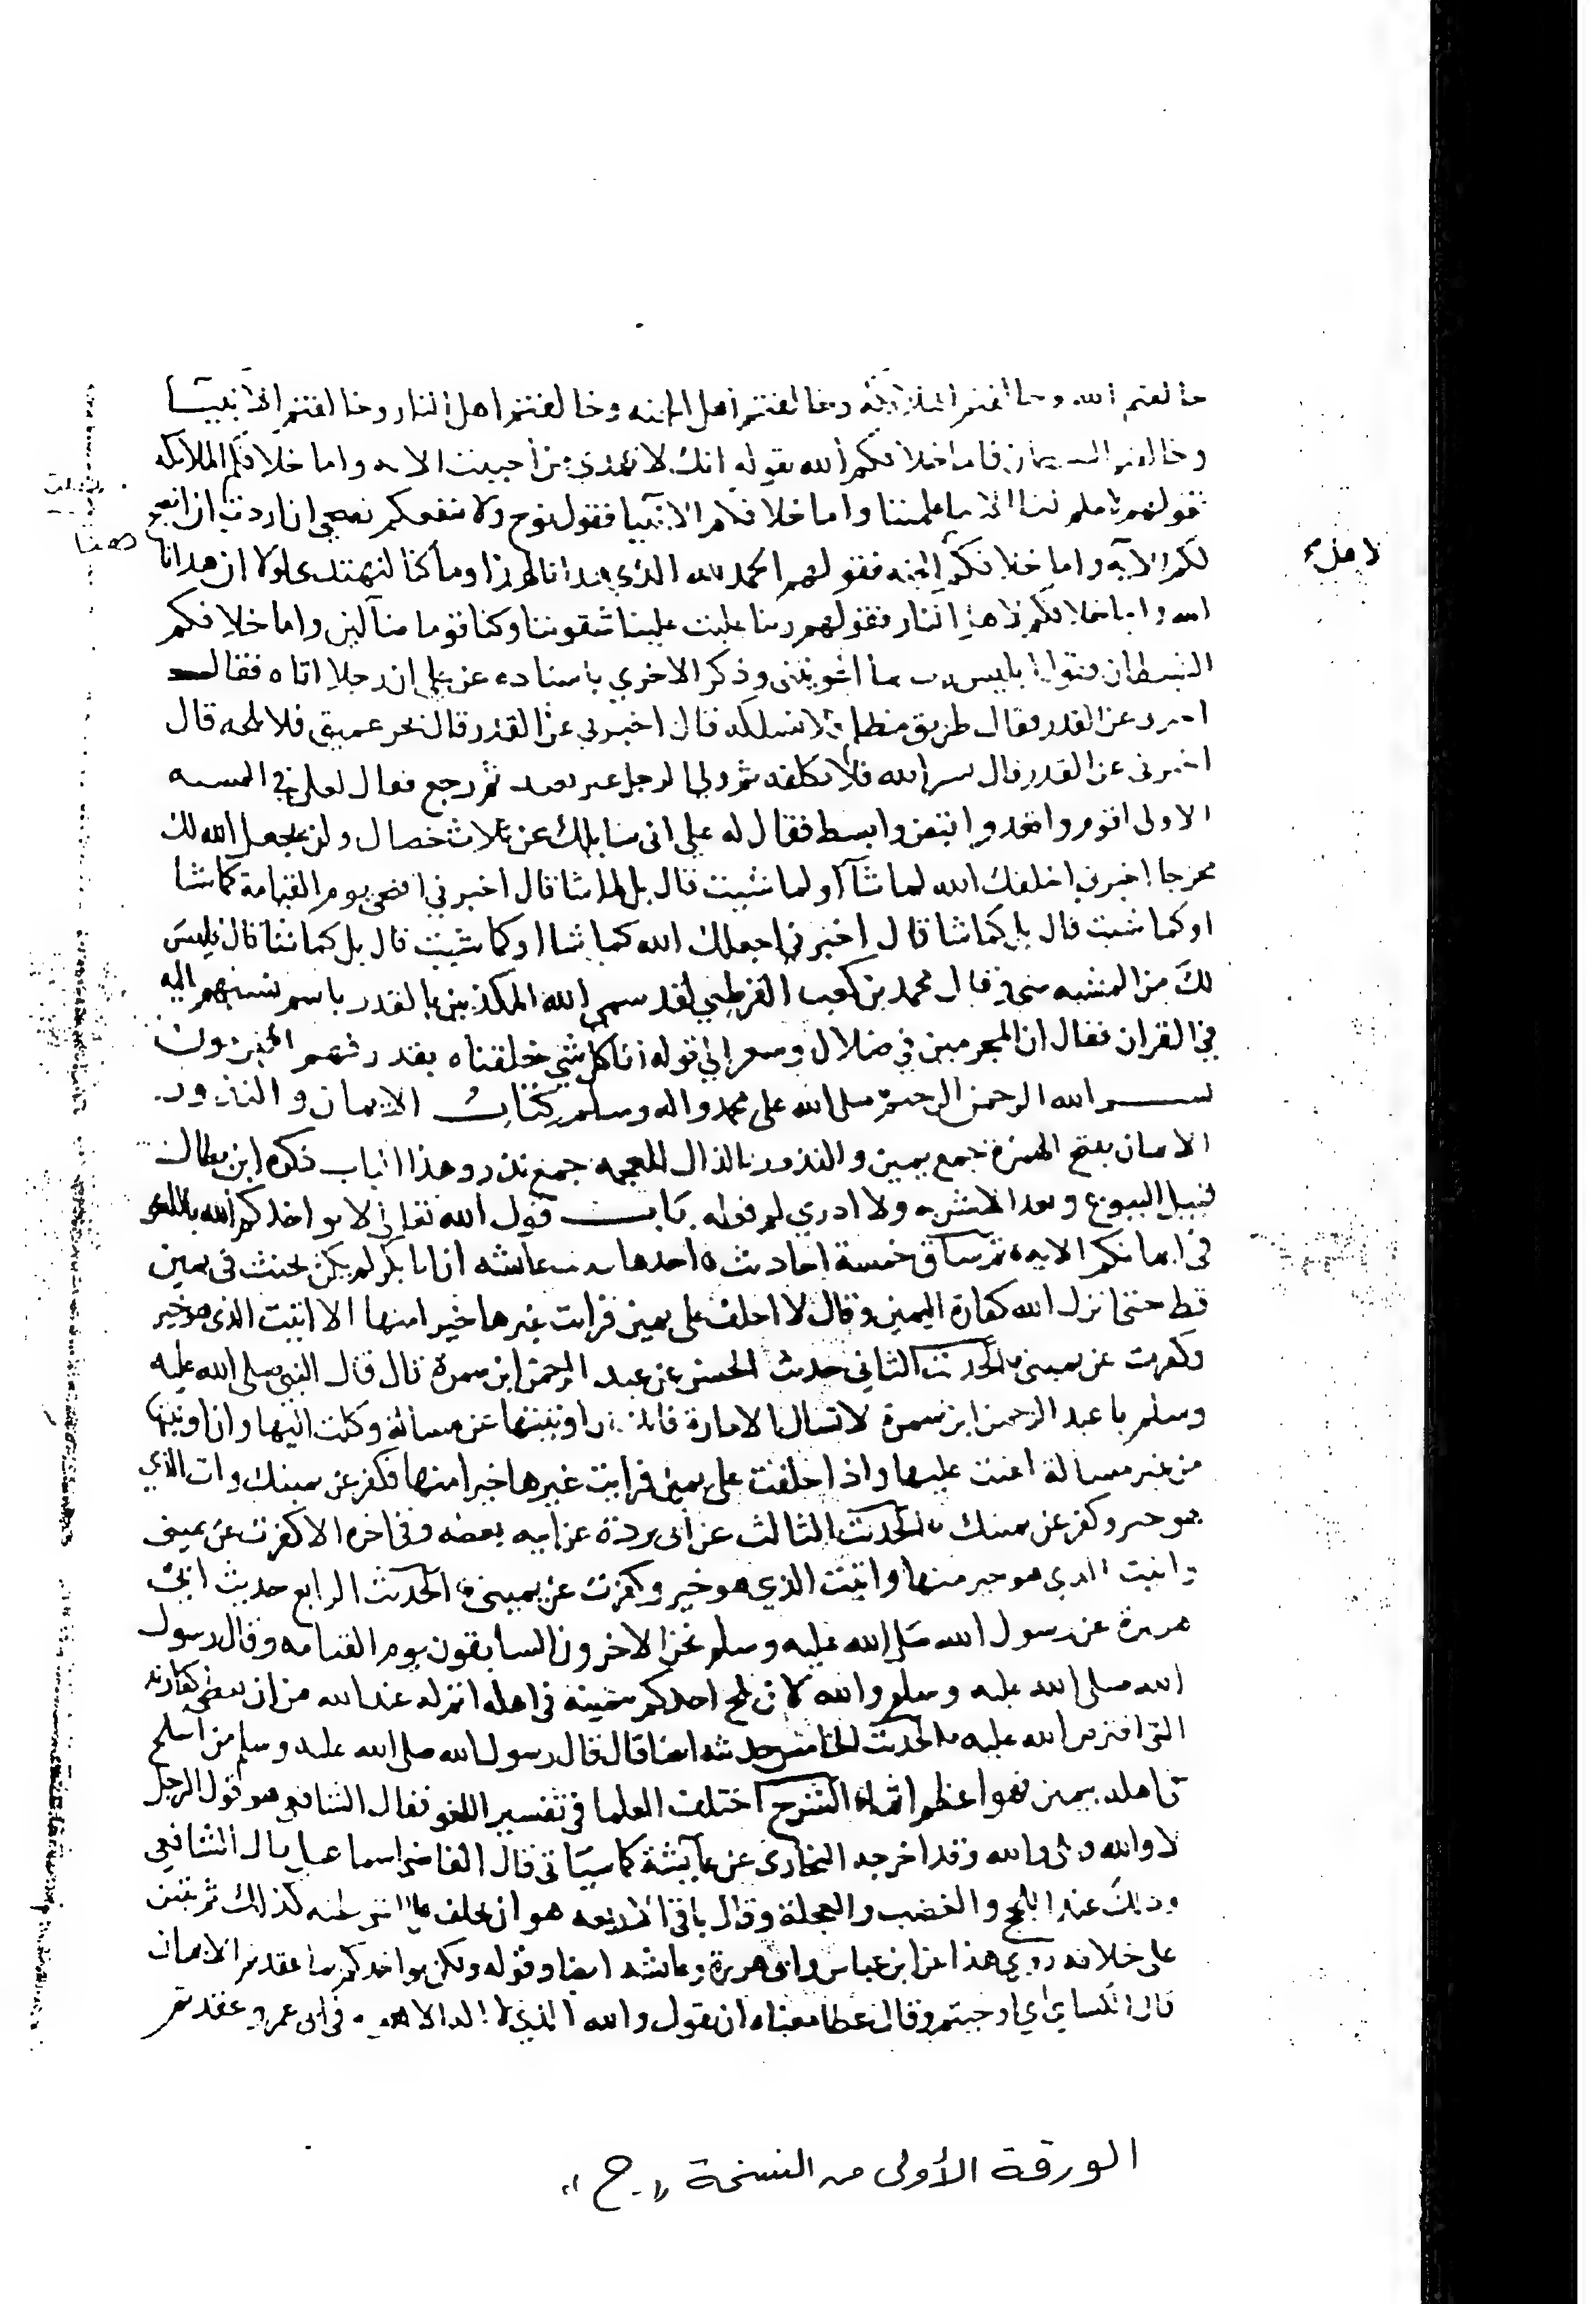 خالفتم الله وخالفتم الملائكة وخالفتم اهل الجنه وخالفتم اهل النار وخالفتم الانبيا
وخالفتم الشيطان فاما خلافكم الله بقوله انك لا تهدي من احببت الايه واما خلافكم الملائكه
فقولهم لا علم لنا الا ما علمتنا واما خلافكم الانبيا فقول نوح ولا ينفعكم نصحي ان اردت ان انصح
لكم الآيه واما خلافكم الجنه فقولهم الحمد لله الذي هدانا لهذا وما كنا لنهتدي لولا ان هدانا
لاهل
هنا
الله واما خلافكم اهل النار فقولهم ربنا غلبت علينا شقوتنا وكنا قوما ضآلين واما خلافكم
الشيطان فقول ابليس رب بما اغويتني وذكر الاخري باسناده عن علي ان رجلا اتاه فقال
اخبرني عن القدر فقال طريق مظلم لا تسلكه قال اخبرني عن القدر قال بحر عميق فلا تلجه قال
اخبرني عن القدر قال سر الله فلا تكلفه ثم ولي الرجل غير بعيد ثم رجع فقال لعلي في المشيه
الاولى اقوم واقعد واقبض وابسط فقال له علي اني سايلك عن ثلاث خصال ولن يجعل الله لك
مخرجا اخبرني اخلقك الله لما شآ او لما شيت قال بل لما شا قال اخبرني افتجي يوم القيامة كما شا
او كما شيت قال بل كما شا قال اخبرني اجعلك الله كما شا او كما شيت قال بل كما شا قال فليس
لك من المشيه شي وقال محمد بن كعب القرظي لقد سمى الله المكذبين بالقدر باسم نسبهم اليه
في القران فقال ان المجرمين في ضلال وسعر إلي قوله انا كل شي خلقناه بقدر فهم المجرمون
بسم الله الرحمن الرحيم صلى الله على محمد واله وسلم كتاب الايمان والنذور
الايمان بفتح الهمزة جمع يمين والنذور بالذال المعجمه جمع نذر وهذا الباب ذكره ابن بطال
قبيل البيوع وبعد الاشربه ولا ادري لم فعله باب قول الله تعالى لا يواخذكم الله باللغو
في ايمانكم الايه ثم ساق خمسة احاديث احدها حديث عايشه ان ابا بكر لم يكن يحنث في يمين
قط حتى انزل الله كفارة اليمين وقال لا احلف على يمين فرايت غيرها خيرا منها الا اتيت الذي هو خير
وكفرت عن يميني الحديث الثاني حديث الحسن عن عبد الرحمن ابن سمرة قال قال النبي صلى الله عليه
وسلم يا عبد الرحمن ابن سمرة لا تسال الامارة فانك ان اوتيتها عن مسالة وكلت اليها وان اوتيتها
من غير مسالة اعنت عليها واذا حلفت على يمين فرايت غيرها خيرا منها فكفر عن يمينك وات الذي
هو خير وكفر عن يمينك الحديث الثالث عن ابي بردة عن ابيه بعضه وفي اخره الا كفرت عن يميني
واتيت الذي هو خير منها واتيت الذي هو خير وكفرت عن يميني الحديث الرابع حديث ابي
هريرة عن رسول الله صلى الله عليه وسلم نحن الاخرون السابقون يوم القيامه وقال رسول
الله صلى الله عليه وسلم والله لان يلج احدكم بيمينه في اهله اثم له عند الله من ان يعطي كفارته
التي افترض الله عليه الحديث الخامس حديثه ايضا قال قال رسول الله صلى الله عليه وسلم من استلج
في اهله بيمين فهو اعظم اثما الشرح اختلف العلما في تفسير اللغو فقال الشافعي هو قول الرجل
لا والله وبلى والله وقد اخرجه البخاري عن عآيشة كما سياتي قال القاضي اسماعيل قال الشافعي
وذلك عند اللجج والغضب والعجلة وقال باقي الاربعه هو ان يحلف على الشي يظنه كذلك ثم يتبين
على خلافه روي هذا عن ابن عباس وابي هريرة وعايشه ايضا وقوله ولكن يواخذكم بما عقدتم الايمان
قال الكساي اي اوجبتم وقال عطا معناه ان يقول والله الذي لا اله الا هو في ابي عمرو عقدتم
الورقة الأولى من النسخة "ح"